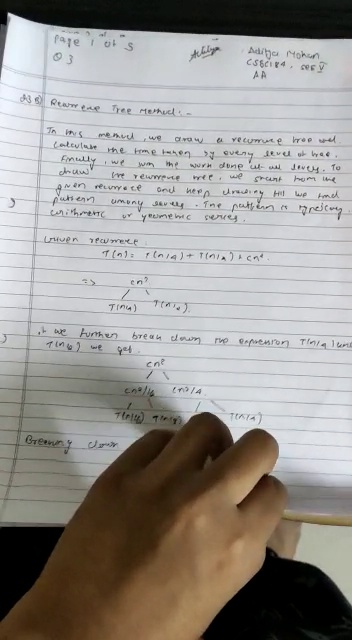 Page 1 of 5
Q3
Aditya Mohan
CSE
AA
Recurrence Tree Method:-
In this method, we draw a recurrence tree and
calculate the time taken by every level of tree.
Finally, we sum the work done at all levels. To
draw the recurrence tree, we start from the
given recurrence and keep drawing till we find
pattern among levels. The pattern is typically
arithmetic or geometric series.
Given recurrence
T(n) = T(n/4) + T(n/2) + cn²
=> cn²
T(n/4) T(n/2)
If we further break down the expression T(n/4) and
T(n/2) we get
cn²
cn²/4
T(n/4)
Breaking down